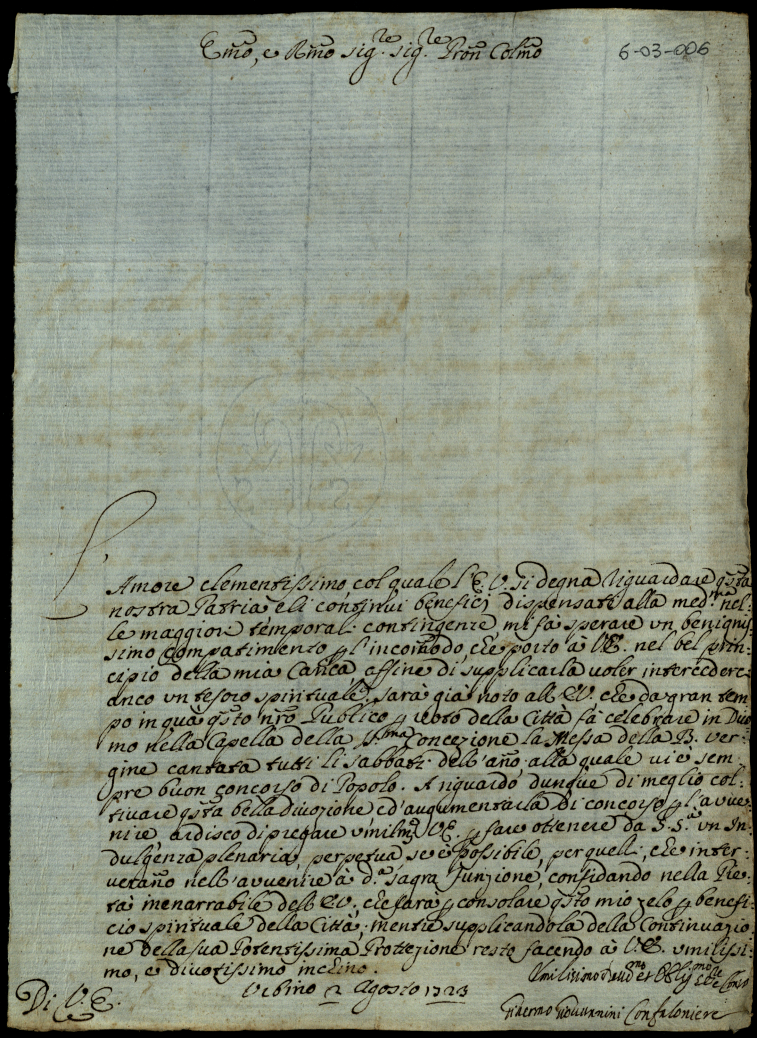 Em̃o, e Rm̃o sig.re sig.re Pron̄ Colm̃o
6-03-006
L'Amore clementissimo col quale l'E. V. si degna riguardare q̃sta
nostra Patria e li continui beneficj dispensati alla med.ma nel-
le maggiori temporali contingenze mi fà sperare vn benignis-
simo compatimento p l'incom̃odo, che porto à V. E. nel bel prin-
cipio della mia Carica affine di supplicarla voler intercedere
anco vn tesoro spirituale. Sarà già noto all'E. V. che da gran tem-
po in quà q̃sto nr̃o Publico p voto della Città fà celebrare in Duo-
mo nella Capella della SS.ma Concezione la Messa della B. Ver-
gine cantata tutti li sabbati dell'año alla quale vi è sem-
pre buon concorso di Popolo. A riguardo dunque di meglio col-
tivare q̃sta bella divozione ed'augumentarla di concorso p l'avve-
nire ardisco di pregare vmilm.te V. E. p fare ottenere da S. S.tà vn In-
dulgenza plenaria, perpetua se è possibile, per quelli, che inter-
verrano nell'avvenire à d.a sagra funzione, confidando nella Pie-
tà inenarrabile dell'E. V. che farà p consolare q̃sto mio zelo p benefi-
cio spirituale della Città; mentre supplicandola della Continuazio-
ne della sua Potentissima Protezzione resto facendo à V. E. vmilissi-
mo, e divotissimo inchino.
Di V. E.
Vrbino 2 Agosto 1723
Vmilissimo Deu.mo et Obblig.mo
Confaloniere